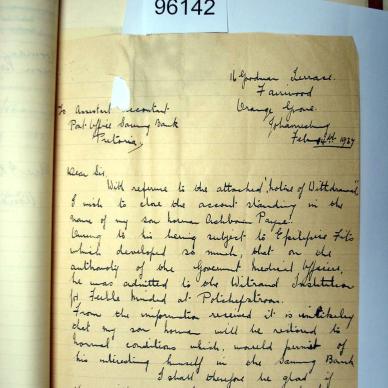 96142
16 Goodman Terrace
Fairwood
Orange Grove
Johannesburg
1937
To Assistant Accountant
Post Office Saving Bank
Pretoria
Dear Sir,
With refernce to the attached "Notice of Withdrawal"
I wish to close the account standing in the
name of my son Norman Ashborn Payne.
Owing to his being subject to Epileptic Fits
which developed so much, that on the
authority of the Government Medical Officer,
he was admitted to the Witrand Institution
for Feeble Minded at Potchefstroom.
From the information received it is unlikely
that my son Norman will be restored to
normal conditions which would permit of
his interesting himself in the Saving Bank
I shall therefore be glad if